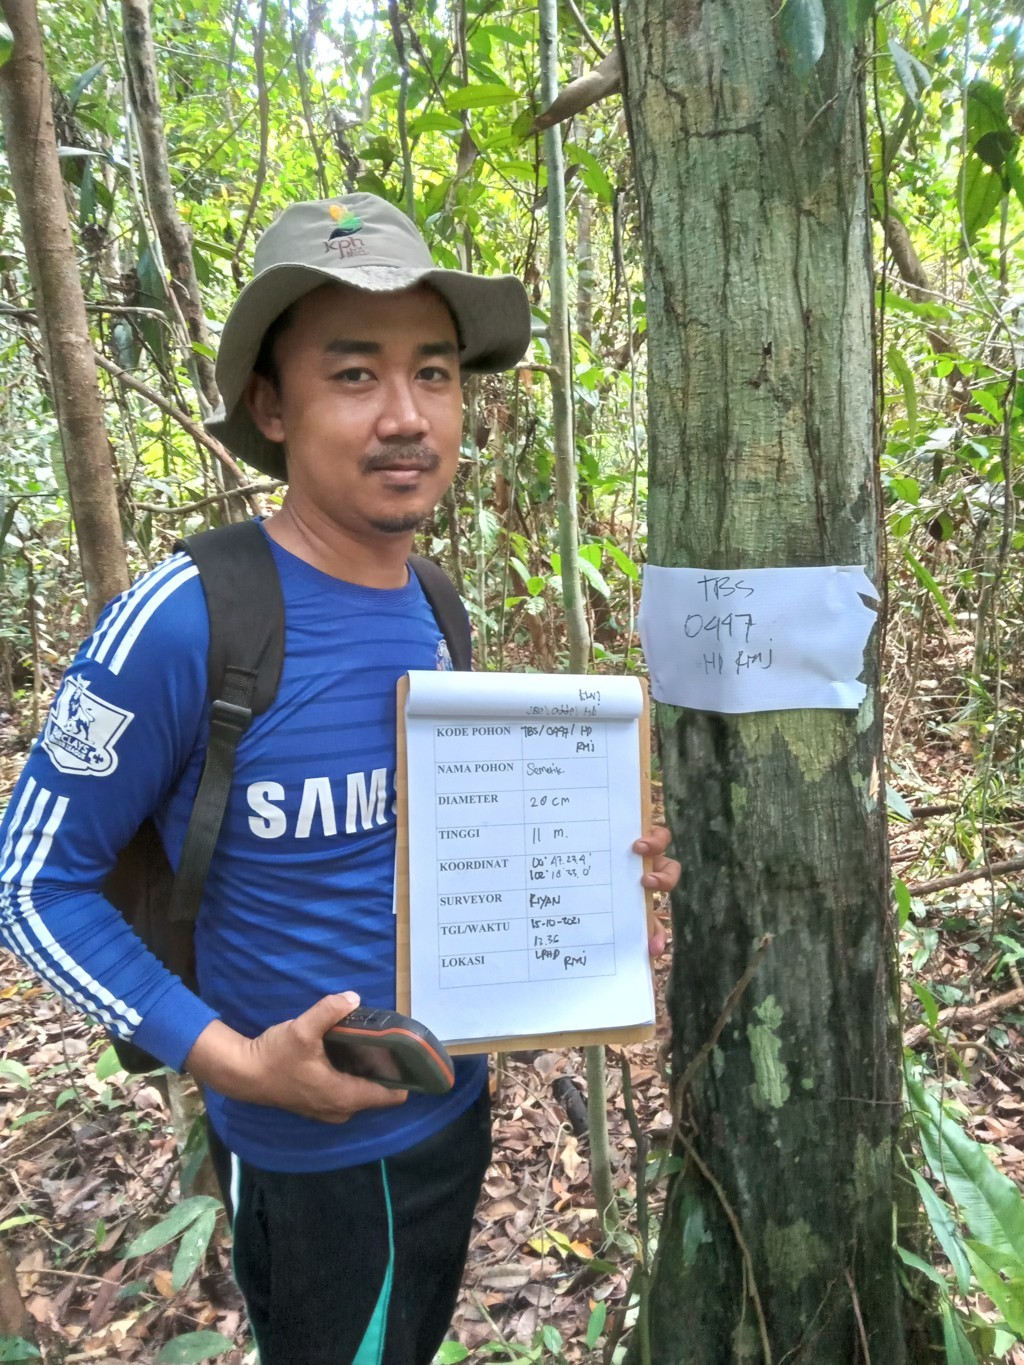 kph
BARCLAYS
SAMS
TBS
0447
HD RMJ
KODE POHON TBS/0447/HD
RMJ
NAMA POHON Semarik
DIAMETER 20 cm
TINGGI 11 m.
KOORDINAT 00° 47' 23.4"
102° 10' 33.0"
SURVEYOR RIYAN
TGL/WAKTU 15-10-2021
13.36
LOKASI LPHD RMJ